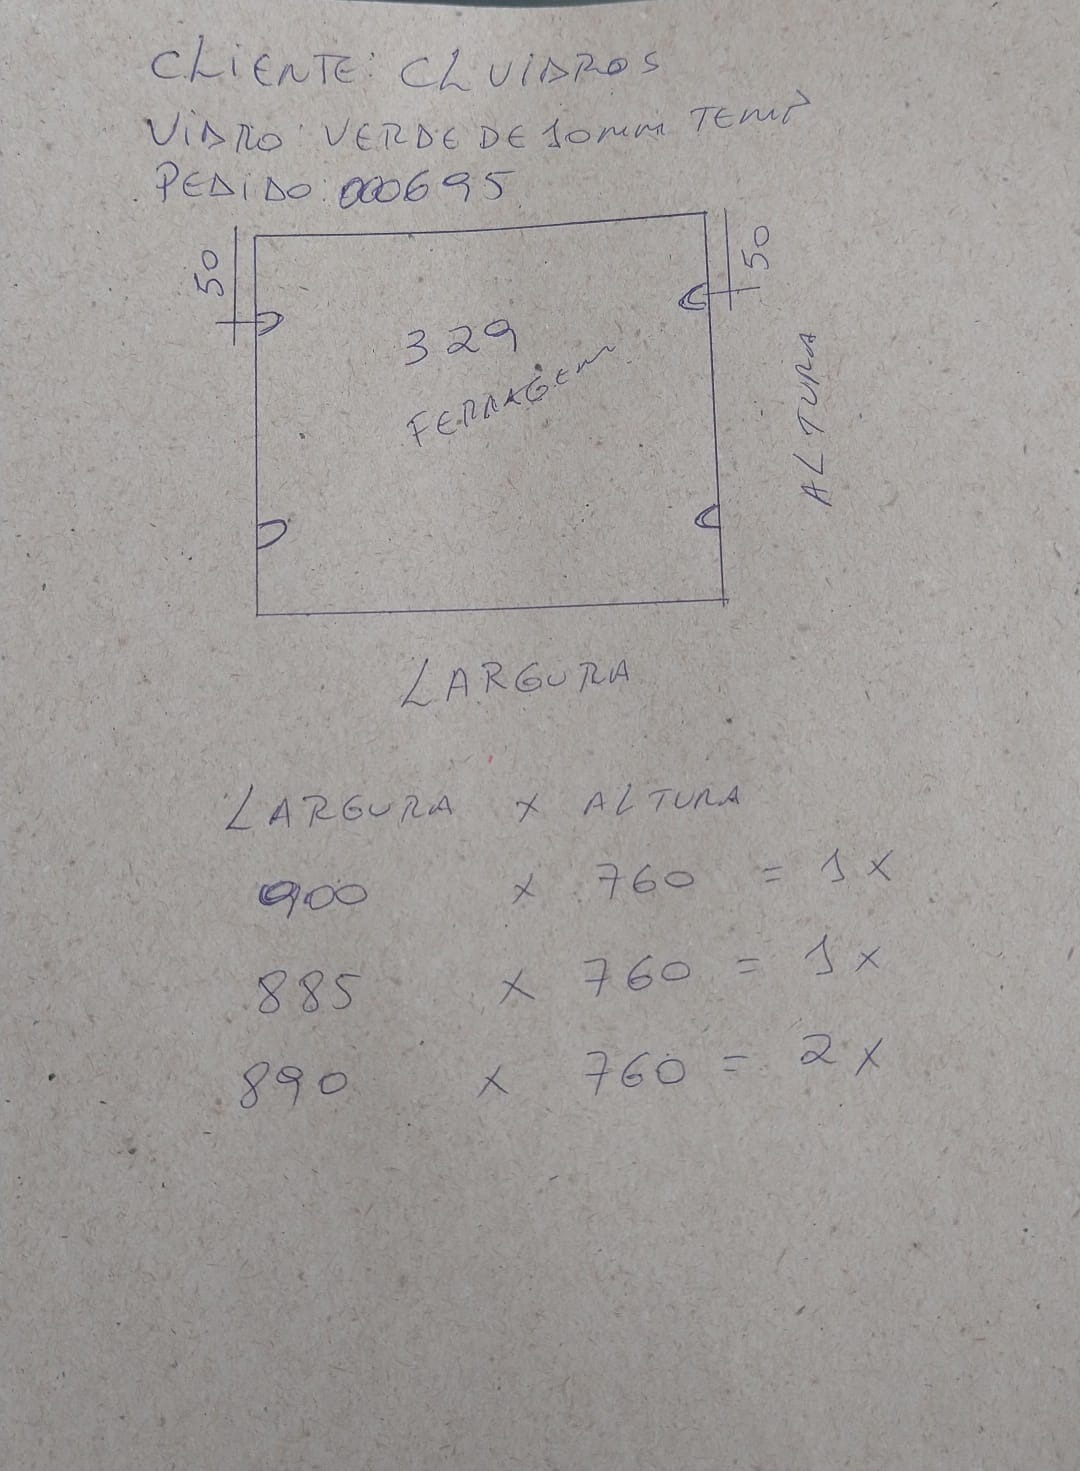 CLIENTE: CL VIDROS
VIDRO: VERDE DE 10mm TEMP
PEDIDO: 000695
50
50
329
FERRAGEM
ALTURA
LARGURA
LARGURA x ALTURA
900 x 760 = 1x
885 x 760 = 1x
890 x 760 = 2x